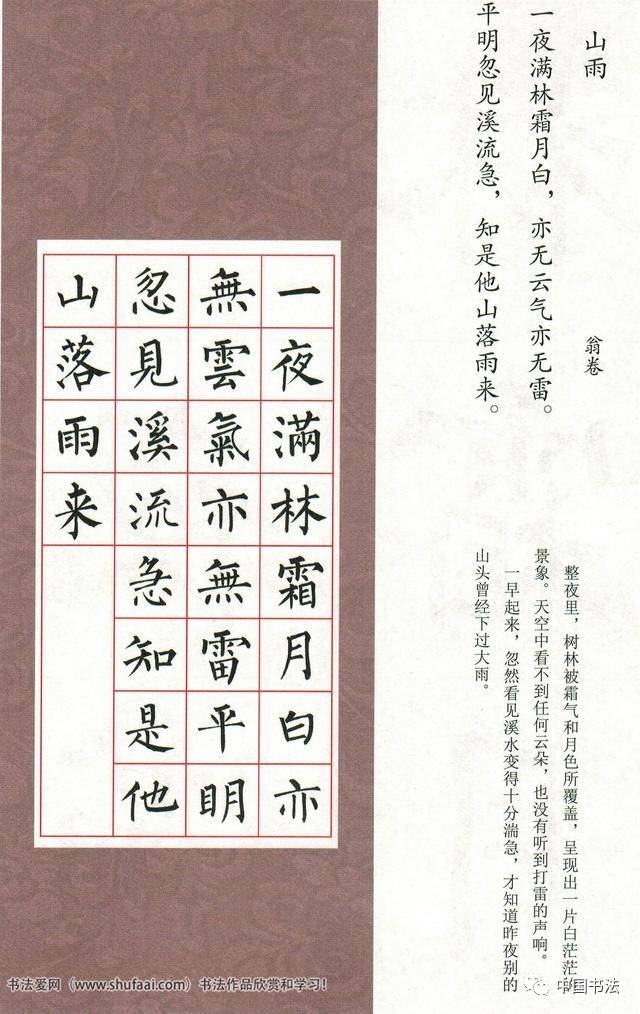 山雨
翁卷
一夜满林霜月白，亦无云气亦无雷。
平明忽见溪流急，知是他山落雨来。
整夜里，树林被霜气和月色所覆盖，呈现出一片白茫茫的
景象。天空中看不到任何云朵，也没有听到打雷的声响。
一早起来，忽然看见溪水变得十分湍急，才知道昨夜别的
山头曾经下过大雨。
一夜滿林霜月白亦
無雲氣亦無雷平明
忽見溪流急知是他
山落雨来
书法爱网（www.shufaai.com）书法作品欣赏和学习！
中国书法